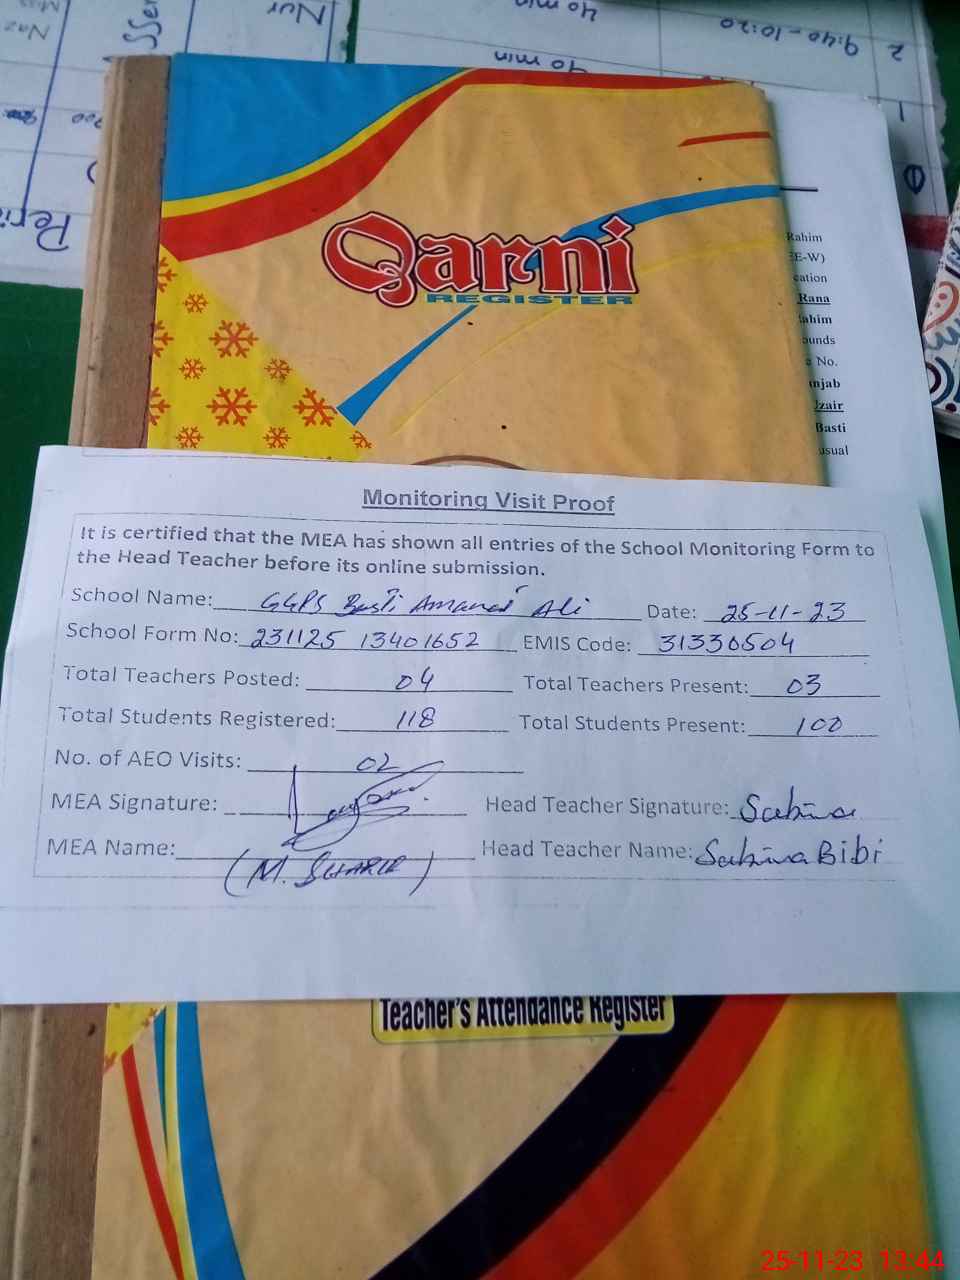 Nur
40 min
2 9:40-10:20
40 min
1
Peri
Qarni
REGISTER
Rahim
EE-W)
cation
Rana
ahim
ounds
No.
njab
Uzair
Basti
usual
Monitoring Visit Proof
It is certified that the MEA has shown all entries of the School Monitoring Form to
the Head Teacher before its online submission.
School Name: GGPS Basti Amanat Ali Date: 25-11-23
School Form No: 231125 13401652 EMIS Code: 31330504
Total Teachers Posted: 04 Total Teachers Present: 03
Total Students Registered: 118 Total Students Present: 100
No. of AEO Visits: 02
MEA Signature: Head Teacher Signature: Sabina
MEA Name: Head Teacher Name: Sabina Bibi
(M. SHARIF)
Teacher's Attendance Register
25-11-23 13:44